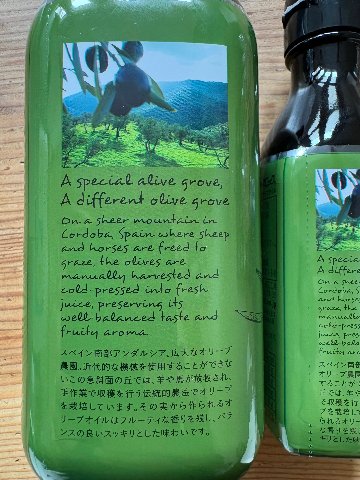 A special alive grove,
A different olive grove
On a sheer mountain in
Cordoba, Spain where sheep
and horses are freed to
graze, the olives are
manually harvested and
cold-pressed into fresh
juice, preserving its
well-balanced taste and
fruity aroma.
スペイン南部アンダルシア。広大なオリーブ
農園。近代的な機械を使用することができ
ないこの急斜面の丘では、羊や馬が放牧され、
手作業で収穫を行う伝統的農法でオリーブ
を栽培しています。その実から作られるオ
リーブオイルはフルーティな香りを残し、バラ
ンスの良いスッキリとした味わいです。
A specia
A differe
On a shee
Cordoba,
and horse
graze, the
manually
juice, pres
well-balan
fruity aro